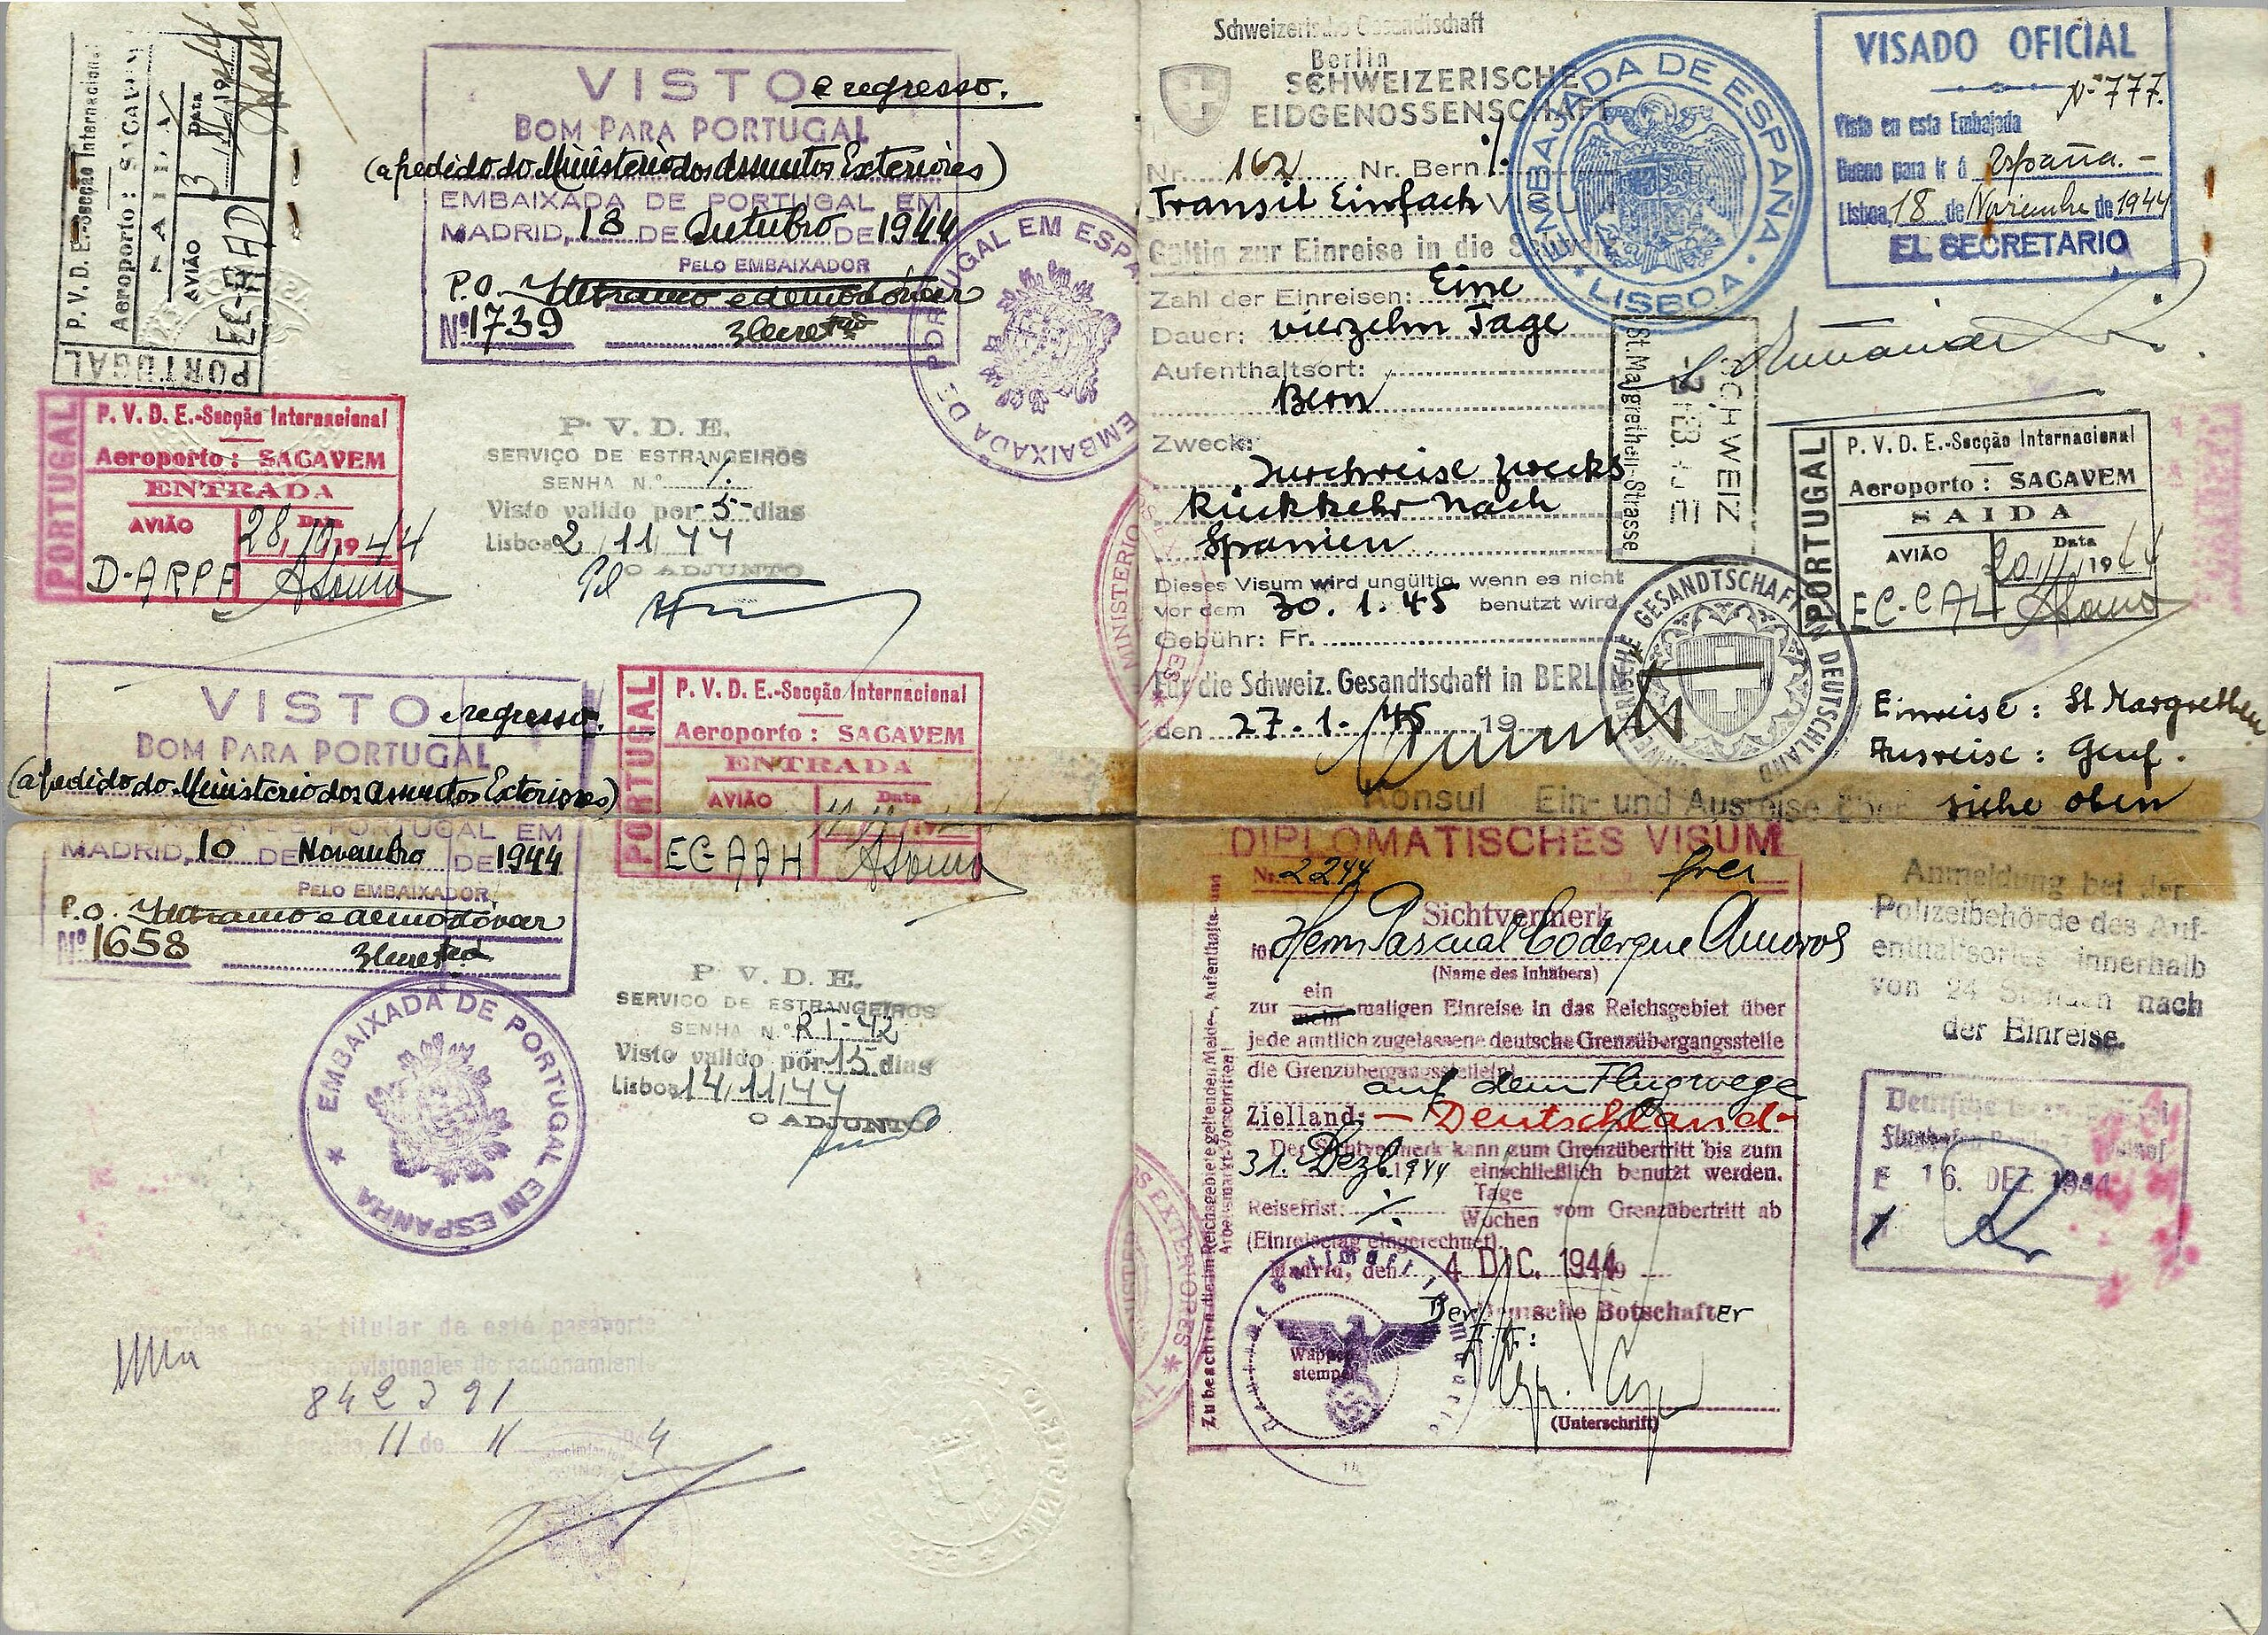 P. V. D. E.-Secção Internacional
Aeroporto: SACAVEM
SAIDA
AVIÃO
Data
3 11 1944
PORTUGAL
VISTO e regresso.
BOM PARA PORTUGAL
(a pedido do Ministerio dos Assuntos Exteriores)
EMBAIXADA DE PORTUGAL EM
MADRID, 18 DE Outubro DE 1944
PELO EMBAIXADOR
P.O.
Nº 1739
EMBAIXADA DE PORTUGAL EM ESPA
PORTUGAL
P. V. D. E.-Secção Internacional
Aeroporto: SACAVEM
ENTRADA
AVIÃO
Data
28, 10, 1944
D-ARPF
P. V. D. E.
SERVIÇO DE ESTRANGEIROS
SENHA N.º
Visto valido por -5- dias
Lisboa 2/11/44
O ADJUNTO
VISTO e regresso.
BOM PARA PORTUGAL
(a pedido do Ministerio dos Assuntos Exteriores)
PORTUGAL EM
MADRID, 10 DE Novembro DE 1944
PELO EMBAIXADOR
P.O.
Nº 1658
PORTUGAL
P. V. D. E.-Secção Internacional
Aeroporto: SACAVEM
ENTRADA
AVIÃO
Data
EC-AAH
EMBAIXADA DE PORTUGAL EM ESPANHA
P. V. D. E.
SERVIÇO DE ESTRANGEIROS
SENHA N.º RI-42
Visto valido por 15 dias
Lisboa 14/11/44
O ADJUNTO
titular de este pasaporte
provisionales de racionamiento
11 de
Schweizerische Gesandtschaft
Berlin
SCHWEIZERISCHE
EIDGENOSSENSCHAFT
Nr. 162 Nr. Bern
Transit Einfach
Gültig zur Einreise in die Schweiz
Zahl der Einreisen: Eine
Dauer: vierzehn Tage
Aufenthaltsort:
Bern
Zweck:
Durchreise zwecks
Rückkehr nach
Spanien
Dieses Visum wird ungültig wenn es nicht
vor dem 30. 1. 45 benutzt wird.
Gebühr: Fr.
Für die Schweiz. Gesandtschaft in BERLIN
den 27. 1. 45 19
Konsul Ein- und Ausreise über siehe oben
EMBAJADA DE ESPAÑA
LISBOA
VISADO OFICIAL
Nº 777.
Visto en esta Embajada
Bueno para ir á España.-
Lisboa, 18 de Noviembre de 1944
EL SECRETARIO
SCHWEIZ
St. Margrethen-Strasse
PORTUGAL
P. V. D. E.-Secção Internacional
Aeroporto: SACAVEM
SAIDA
AVIÃO
Data
20, 11, 1944
EC-CAL
SCHWEIZERISCHE GESANDTSCHAFT IN DEUTSCHLAND
Einreise: St Margrethen
Ausreise: Genf.
DIPLOMATISCHES VISUM
Nr. 2244 frei
Sichtvermerk
für Herrn Pascual Coderque Amoros
(Name des Inhabers)
ein
zur maligen Einreise in das Reichsgebiet über
jede amtlich zugelassene deutsche Grenzübergangsstelle
die Grenzübergangsstelle(n)
auf dem Flugwege
Zielland: - Deutschland -
Der Sichtvermerk kann zum Grenzübertritt bis zum
31. Dezb. 1944 einschließlich benutzt werden.
Tage
Reisefrist: Wochen vom Grenzübertritt ab
(Einreisetag eingerechnet).
Madrid, den 4 DIC. 1944
Der Deutsche Botschafter
Wappen
stempel
(Unterschrift)
Zu beachten die im Reichsgebiete geltenden Melde-, Aufenthalts- und
Arbeitsmarkt-Vorschriften!
Anmeldung bei der
Polizeibehörde des Auf-
enthaltsortes innerhalb
von 24 Stunden nach
der Einreise.
E 16. DEZ. 1944
MINISTERIO
EXTERIORES